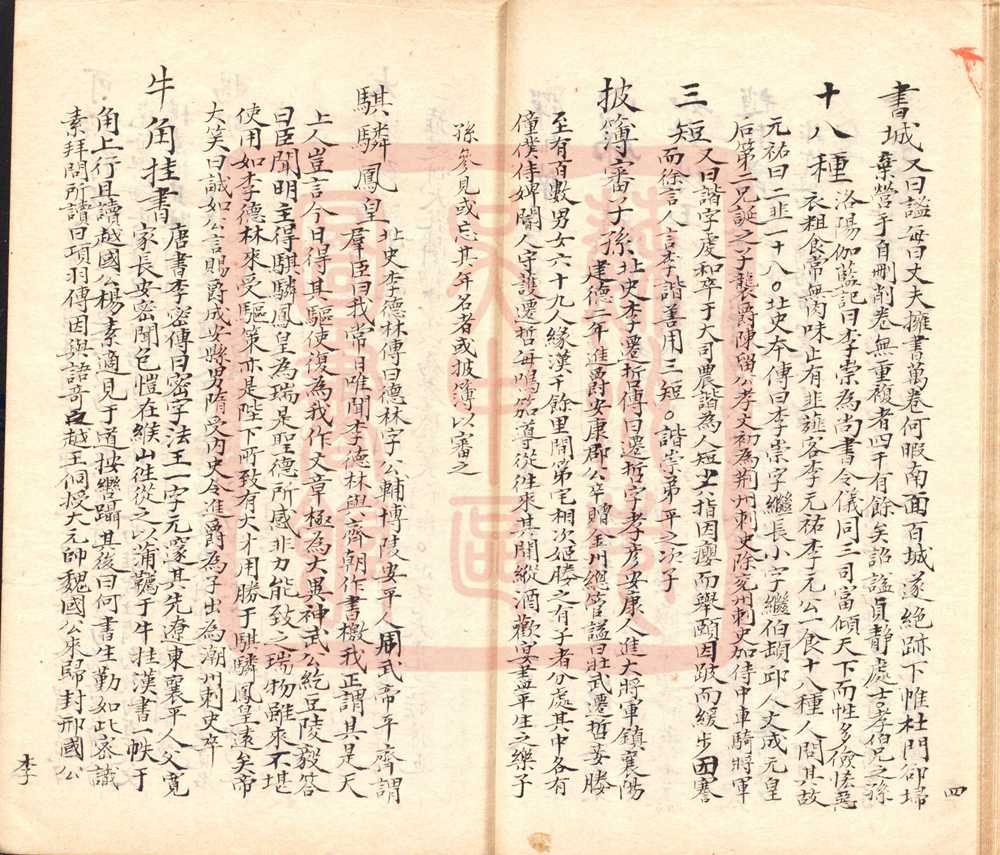 書城 又曰謐每曰丈夫擁書萬卷何暇南面百城遂絕跡下帷杜門卻埽
棄營手自刪削卷無重複者四千有餘矣詔謐貞靜處士孝伯兄之孫
十八種 洛陽伽藍記曰李崇為尚書令儀同三司富傾天下而性多儉恡惡
衣粗食常無肉味止有韭薤客李元祐李元公一食十八種人問其故
元祐曰二韭一十八○北史本傳曰李崇字繼長小字繼伯頓邱人文成元皇
后第二兄誕之子襲爵陳留公孝文初為荊州刺史除兗州刺史加侍中車騎將軍
三短 又曰諧字虔和卒于大司農諧為人短小六指因癭而舉頤因跛而緩步因謇
而徐言人言李諧善用三短○諧崇弟平之次子
披簿審子孫 北史李遷哲傳曰遷哲字孝彥安康人進大將軍鎮襄陽
建德二年進爵安康郡公卒贈金川總管謚曰壯武遷哲妾媵
至有百數男女六十九人緣漢千餘里間第宅相次姬媵之有子者分處其中各有
僮僕侍婢閽人守護遷哲每鳴笳導從往來其間縱酒歡宴盡平生之樂子
孫參見或忘其年名者或披簿以審之
騏驎鳳皇 北史李德林傳曰德林字公輔博陵安平人周武帝平齊謂
羣臣曰我常日唯聞李德林與齊朝作書檄我正謂其是天
上人豈言今日得其驅使復為我作文章極為大異神武公紇豆陵毅答
曰臣聞明主得騏驎鳳皇為瑞是聖德所感非力能致之瑞物雖來不堪
使用如李德林來受驅策亦是陛下所致有大才用勝于騏驎鳳皇遠矣帝
大笑曰誠如公言賜爵成安縣男隋受內史令進爵為子出為潮州刺史卒
牛角挂書 唐書李密傳曰密字法王一字元邃其先遼東襄平人父寬
家長安密聞包愷在緱山往從之以蒲韉于牛挂漢書一帙于
角上行且讀越國公楊素適見于道按轡躡其後曰何書生勤如此密識
素拜問所讀曰項羽傳因與語奇之越王侗授大元帥魏國公來歸封邢國公
四
李